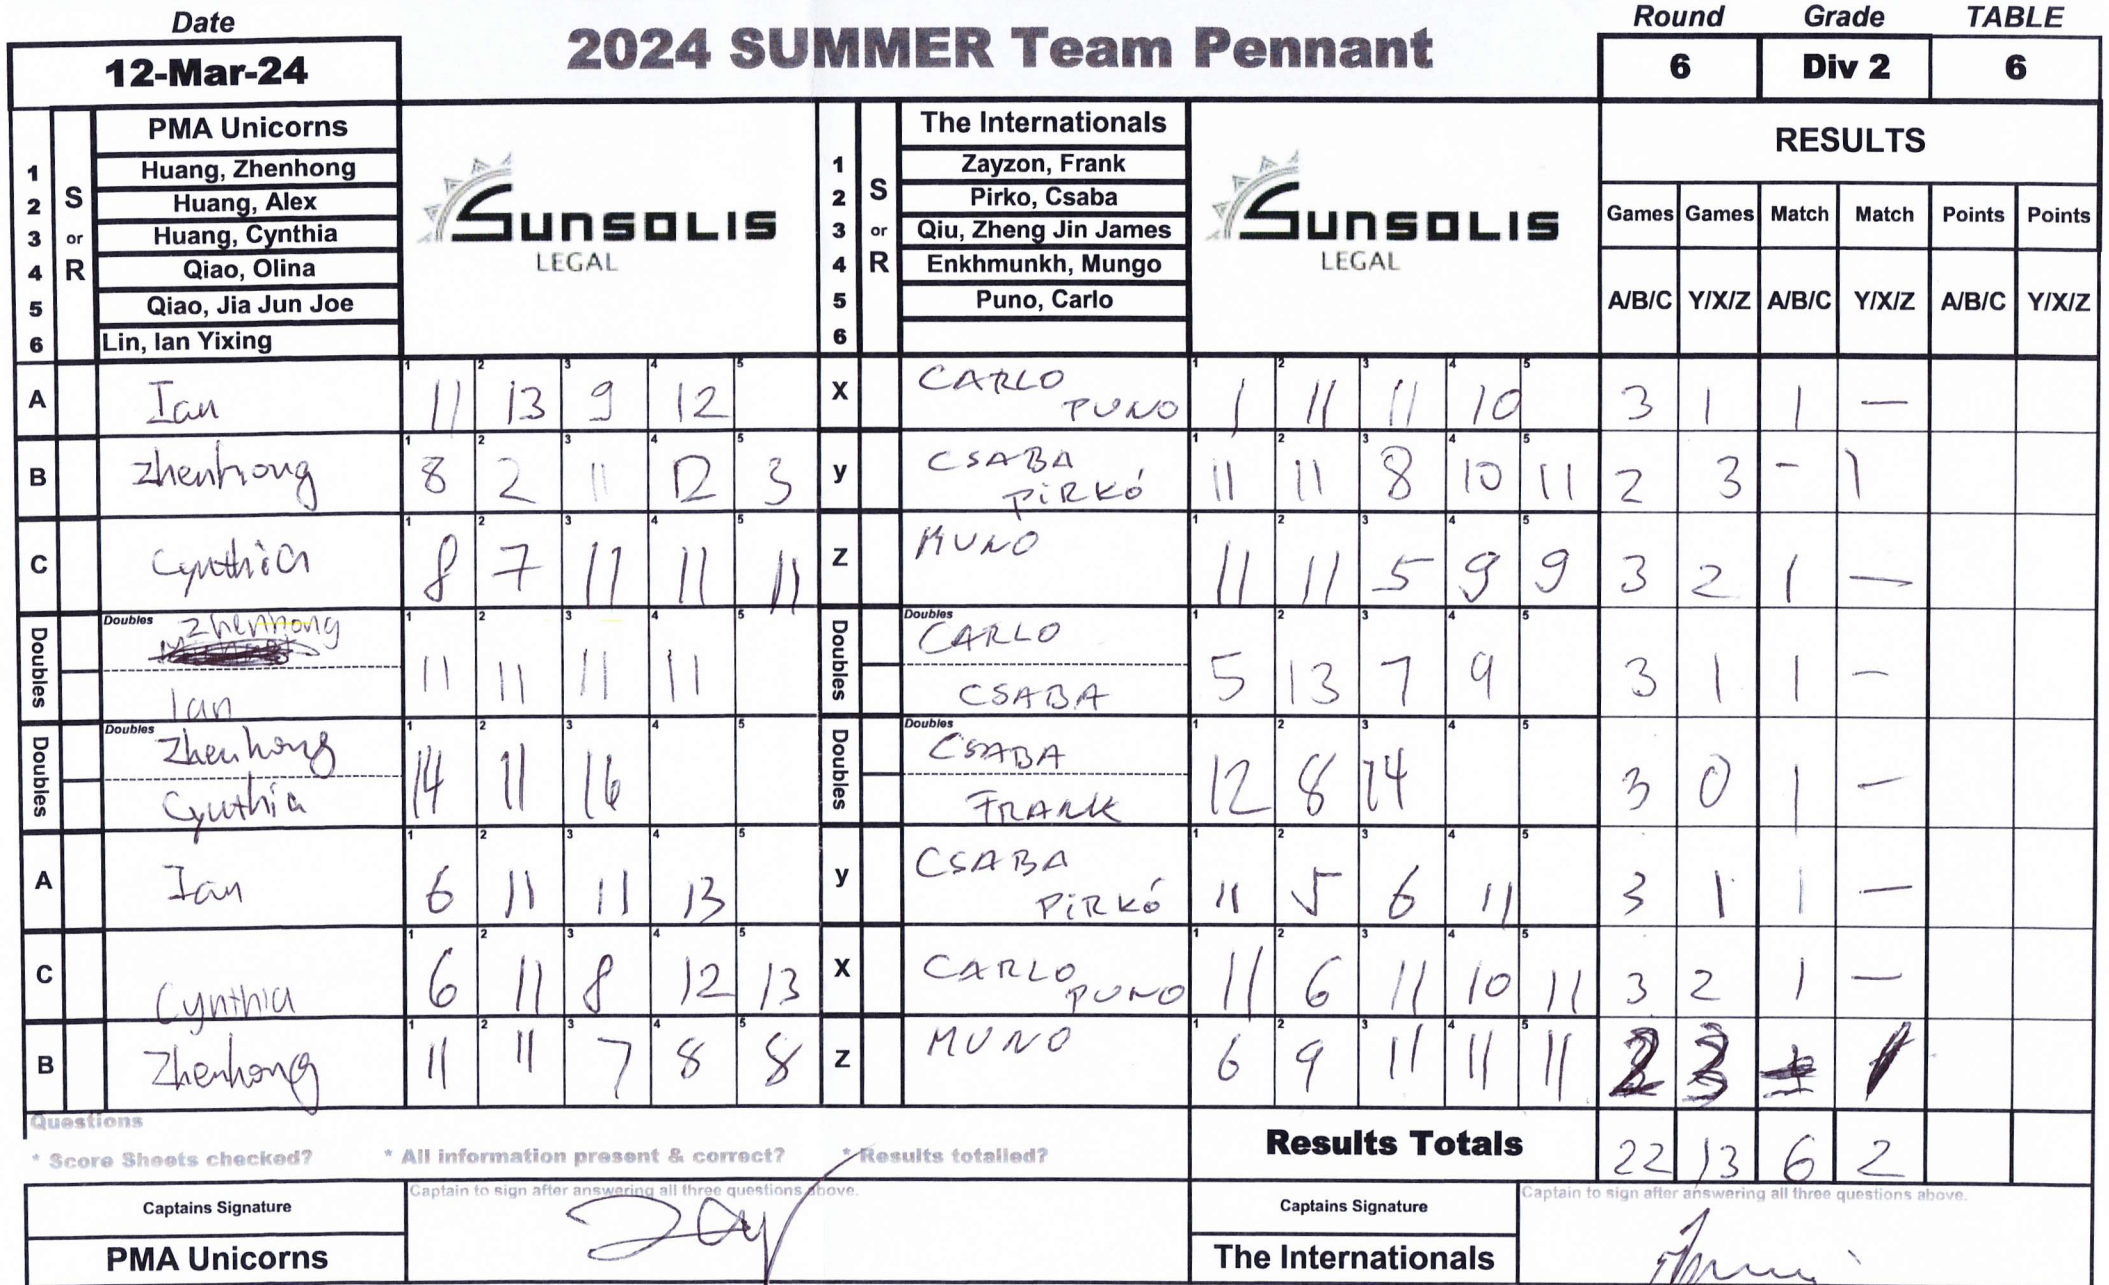 Date
12-Mar-24
2024 SUMMER Team Pennant
Round Grade TABLE
6 Div 2 6
S or R
PMA Unicorns
1 Huang, Zhenhong
2 Huang, Alex
3 Huang, Cynthia
4 Qiao, Olina
5 Qiao, Jia Jun Joe
6 Lin, Ian Yixing
SUNSOLIS
LEGAL
S or R
The Internationals
1 Zayzon, Frank
2 Pirko, Csaba
3 Qiu, Zheng Jin James
4 Enkhmunkh, Mungo
5 Puno, Carlo
6
SUNSOLIS
LEGAL
RESULTS
Games Games Match Match Points Points
A/B/C Y/X/Z A/B/C Y/X/Z A/B/C Y/X/Z
A Ian 1 11 2 13 3 9 4 12 5 X CARLO PUNO 1 1 2 11 3 11 4 10 5 3 1 1 —
B Zhenhong 1 8 2 2 3 11 4 12 5 3 y CSABA PIRKÓ 1 11 2 11 3 8 4 10 5 11 2 3 - 1
C Cynthia 1 8 2 7 3 11 4 11 5 11 Z MUNO 1 11 2 11 3 5 4 9 5 9 3 2 1 —
Doubles Doubles Zhenhong Ian 1 11 2 11 3 11 4 11 Doubles Doubles CARLO CSABA 1 5 2 13 3 7 4 9 5 3 1 1 —
Doubles Doubles Zhenhong Cynthia 1 14 2 11 3 16 4 5 Doubles Doubles CSABA FRANK 1 12 2 8 3 14 4 5 3 0 1 —
A Ian 1 6 2 11 3 11 4 13 5 y CSABA PIRKÓ 1 11 2 5 3 6 4 11 5 3 1 1 —
C Cynthia 1 6 2 11 3 8 4 12 5 13 X CARLO PUNO 1 11 2 6 3 11 4 10 5 11 3 2 1 —
B Zhenhong 1 11 2 11 3 7 4 8 5 8 Z MUNO 1 6 2 9 3 11 4 11 5 11 2 3 1
Questions
* Score Sheets checked? * All information present & correct? * Results totalled?
Results Totals 22 13 6 2
Captains Signature
Captain to sign after answering all three questions above.
PMA Unicorns
Captains Signature
Captain to sign after answering all three questions above.
The Internationals